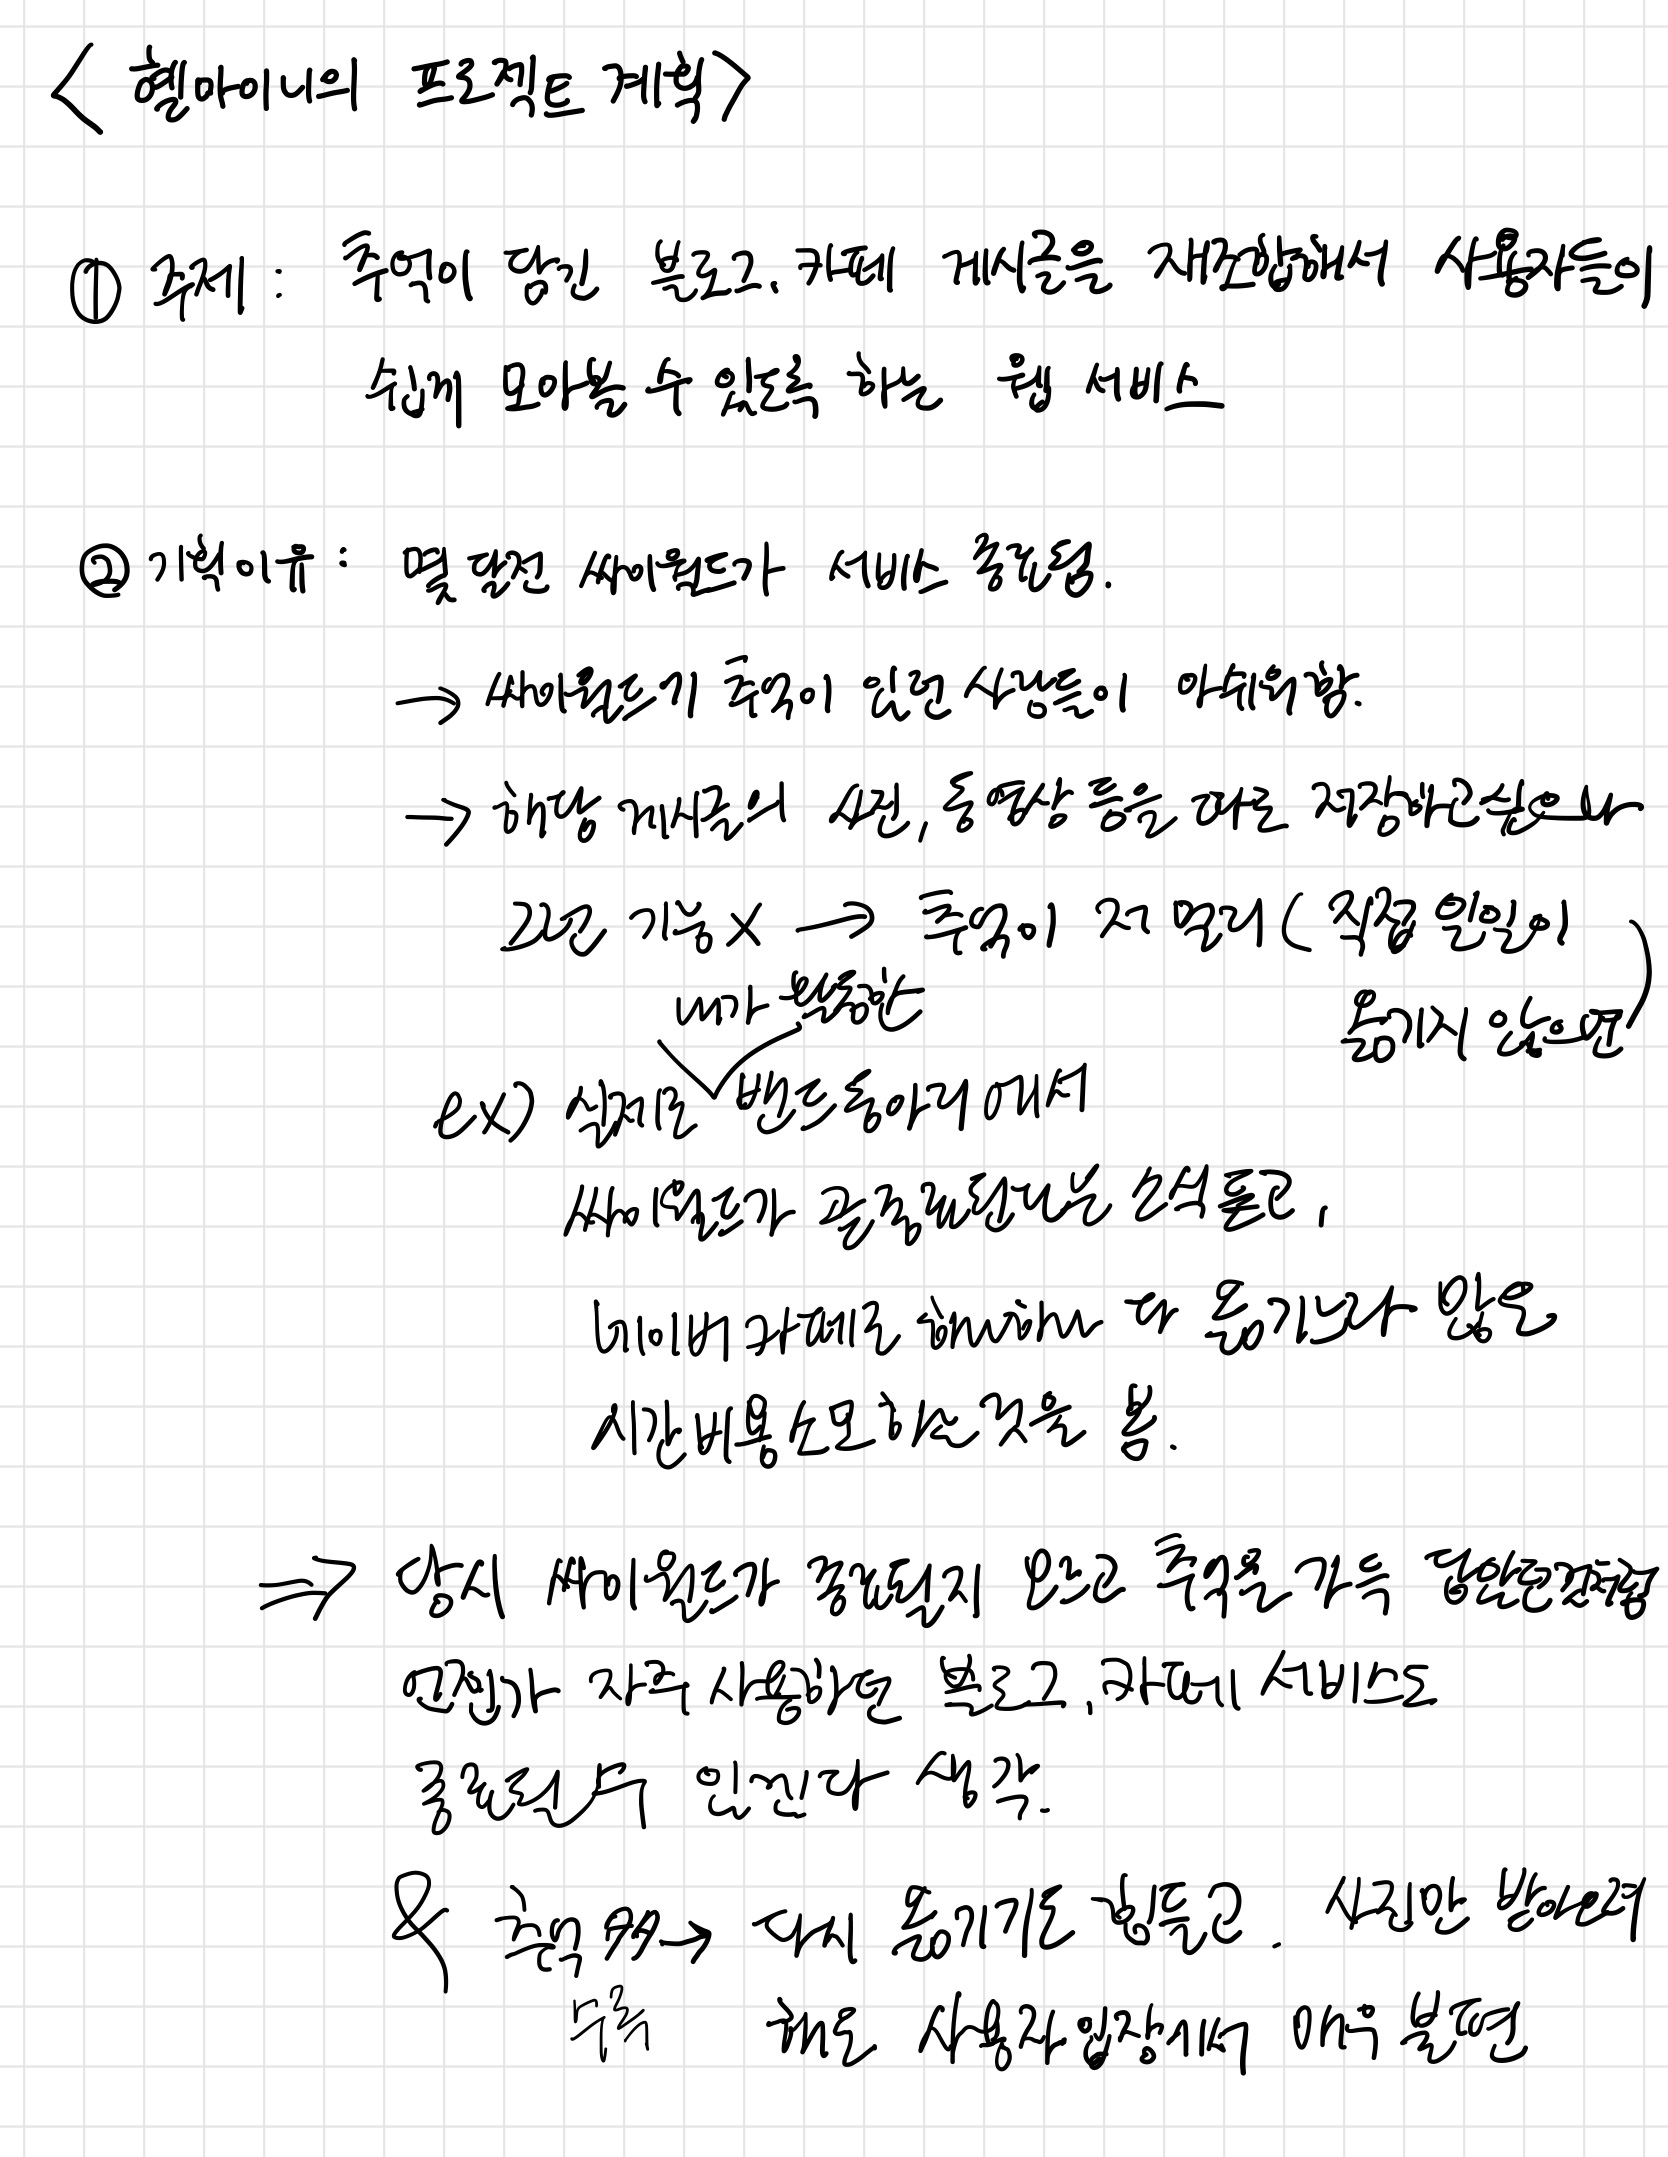 < 헬마이니의 프로젝트 계획>
① 주제 : 추억이 담긴 블로그, 카페 게시글을 재조합해서 사용자들이
쉽게 모아볼 수 있도록 하는 웹 서비스
② 기획이유 : 몇 달전 싸이월드가 서비스 종료됨.
→ 싸이월드가 추억이 있던 사람들이 아쉬워함.
→ 해당 게시글의 사진, 동영상 등을 따로 저장하고싶으나
그런 기능 X → 추억이 저 멀리 ( 직접 일일이
옮기지 않으면)
내가 활동한
ex) 실제로 밴드동아리에서
싸이월드가 곧 종료된다는 소식 듣고,
네이버 카페로 하나하나 다 옮기느라 많은
시간비용소모하는 것을 봄.
⇒ 당시 싸이월드가 종료될지 모르고 추억을 가득 담았던것처럼
언젠가 자주 사용하던 블로그, 카페 서비스도
종료될 수 있겠다 생각.
& 추억 → 다시 옮기기도 힘들고. 사진만 받아오려
수록 해도 사용자입장에서 매우 불편